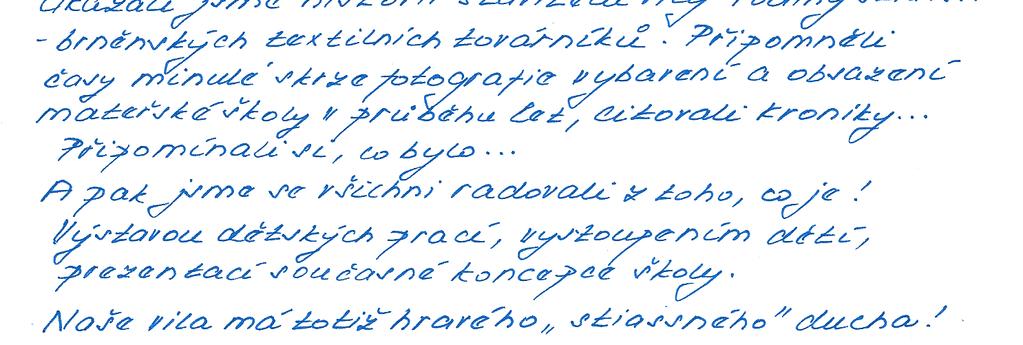 Ukázali jsme historii
- brněnských textilních továrníků. Připomněli
časy minulé skrze fotografie vybavení a obsazení
mateřské školy v průběhu let, citovali kroniky...
Připomínali si, co bylo...
A pak jsme se všichni radovali z toho, co je!
Výstavou dětských prací, vystoupením dětí,
prezentací současné koncepce školy.
Naše vila má totiž hravého „stiassného" ducha!